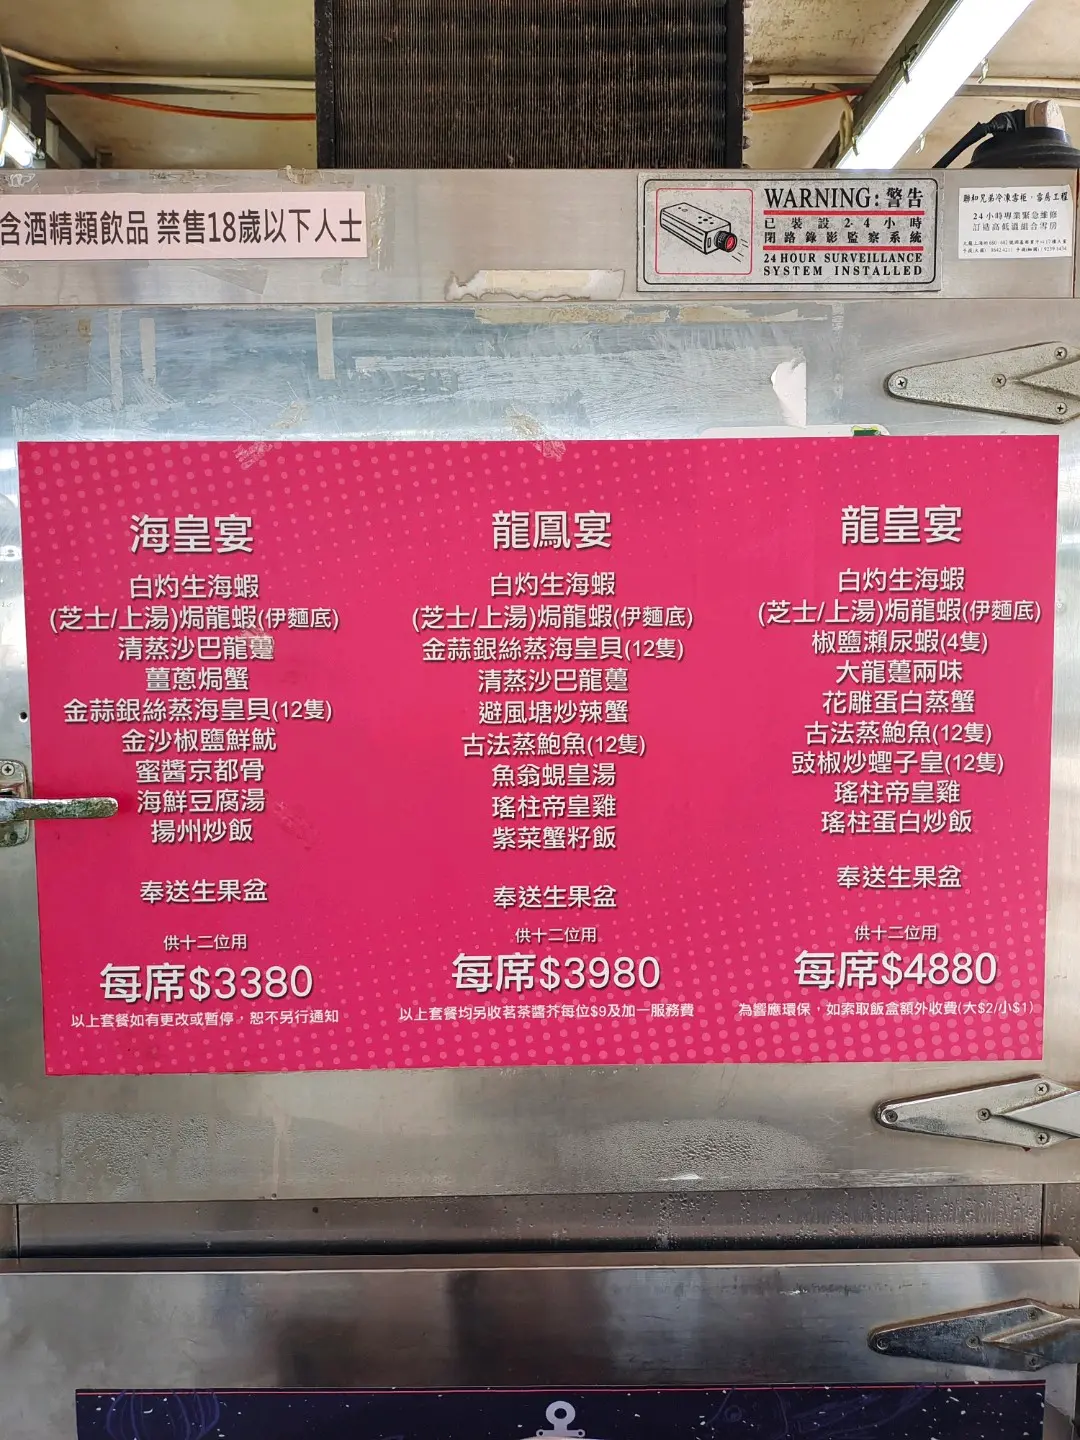 含酒精類飲品 禁售18歲以下人士
WARNING: 警告
已裝設24小時
閉路錄影監察系統
24 HOUR SURVEILLANCE
SYSTEM INSTALLED
聯和兄弟冷凍雪柜．雪房工程
24小時專業緊急維修
訂造高低溫組合雪房
海皇宴
白灼生海蝦
(芝士/上湯)焗龍蝦(伊麵底)
清蒸沙巴龍躉
薑蔥焗蟹
金蒜銀絲蒸海皇貝(12隻)
金沙椒鹽鮮魷
蜜醬京都骨
海鮮豆腐湯
揚州炒飯
奉送生果盆
供十二位用
每席$3380
以上套餐如有更改或暫停，恕不另行通知
龍鳳宴
白灼生海蝦
(芝士/上湯)焗龍蝦(伊麵底)
金蒜銀絲蒸海皇貝(12隻)
清蒸沙巴龍躉
避風塘炒辣蟹
古法蒸鮑魚(12隻)
魚翁蜆皇湯
瑤柱帝皇雞
紫菜蟹籽飯
奉送生果盆
供十二位用
每席$3980
以上套餐均另收茗茶醬芥每位$9及加一服務費
龍皇宴
白灼生海蝦
(芝士/上湯)焗龍蝦(伊麵底)
椒鹽瀨尿蝦(4隻)
大龍躉兩味
花雕蛋白蒸蟹
古法蒸鮑魚(12隻)
豉椒炒蟶子皇(12隻)
瑤柱帝皇雞
瑤柱蛋白炒飯
奉送生果盆
供十二位用
每席$4880
為響應環保，如索取飯盒額外收費(大$2/小$1)